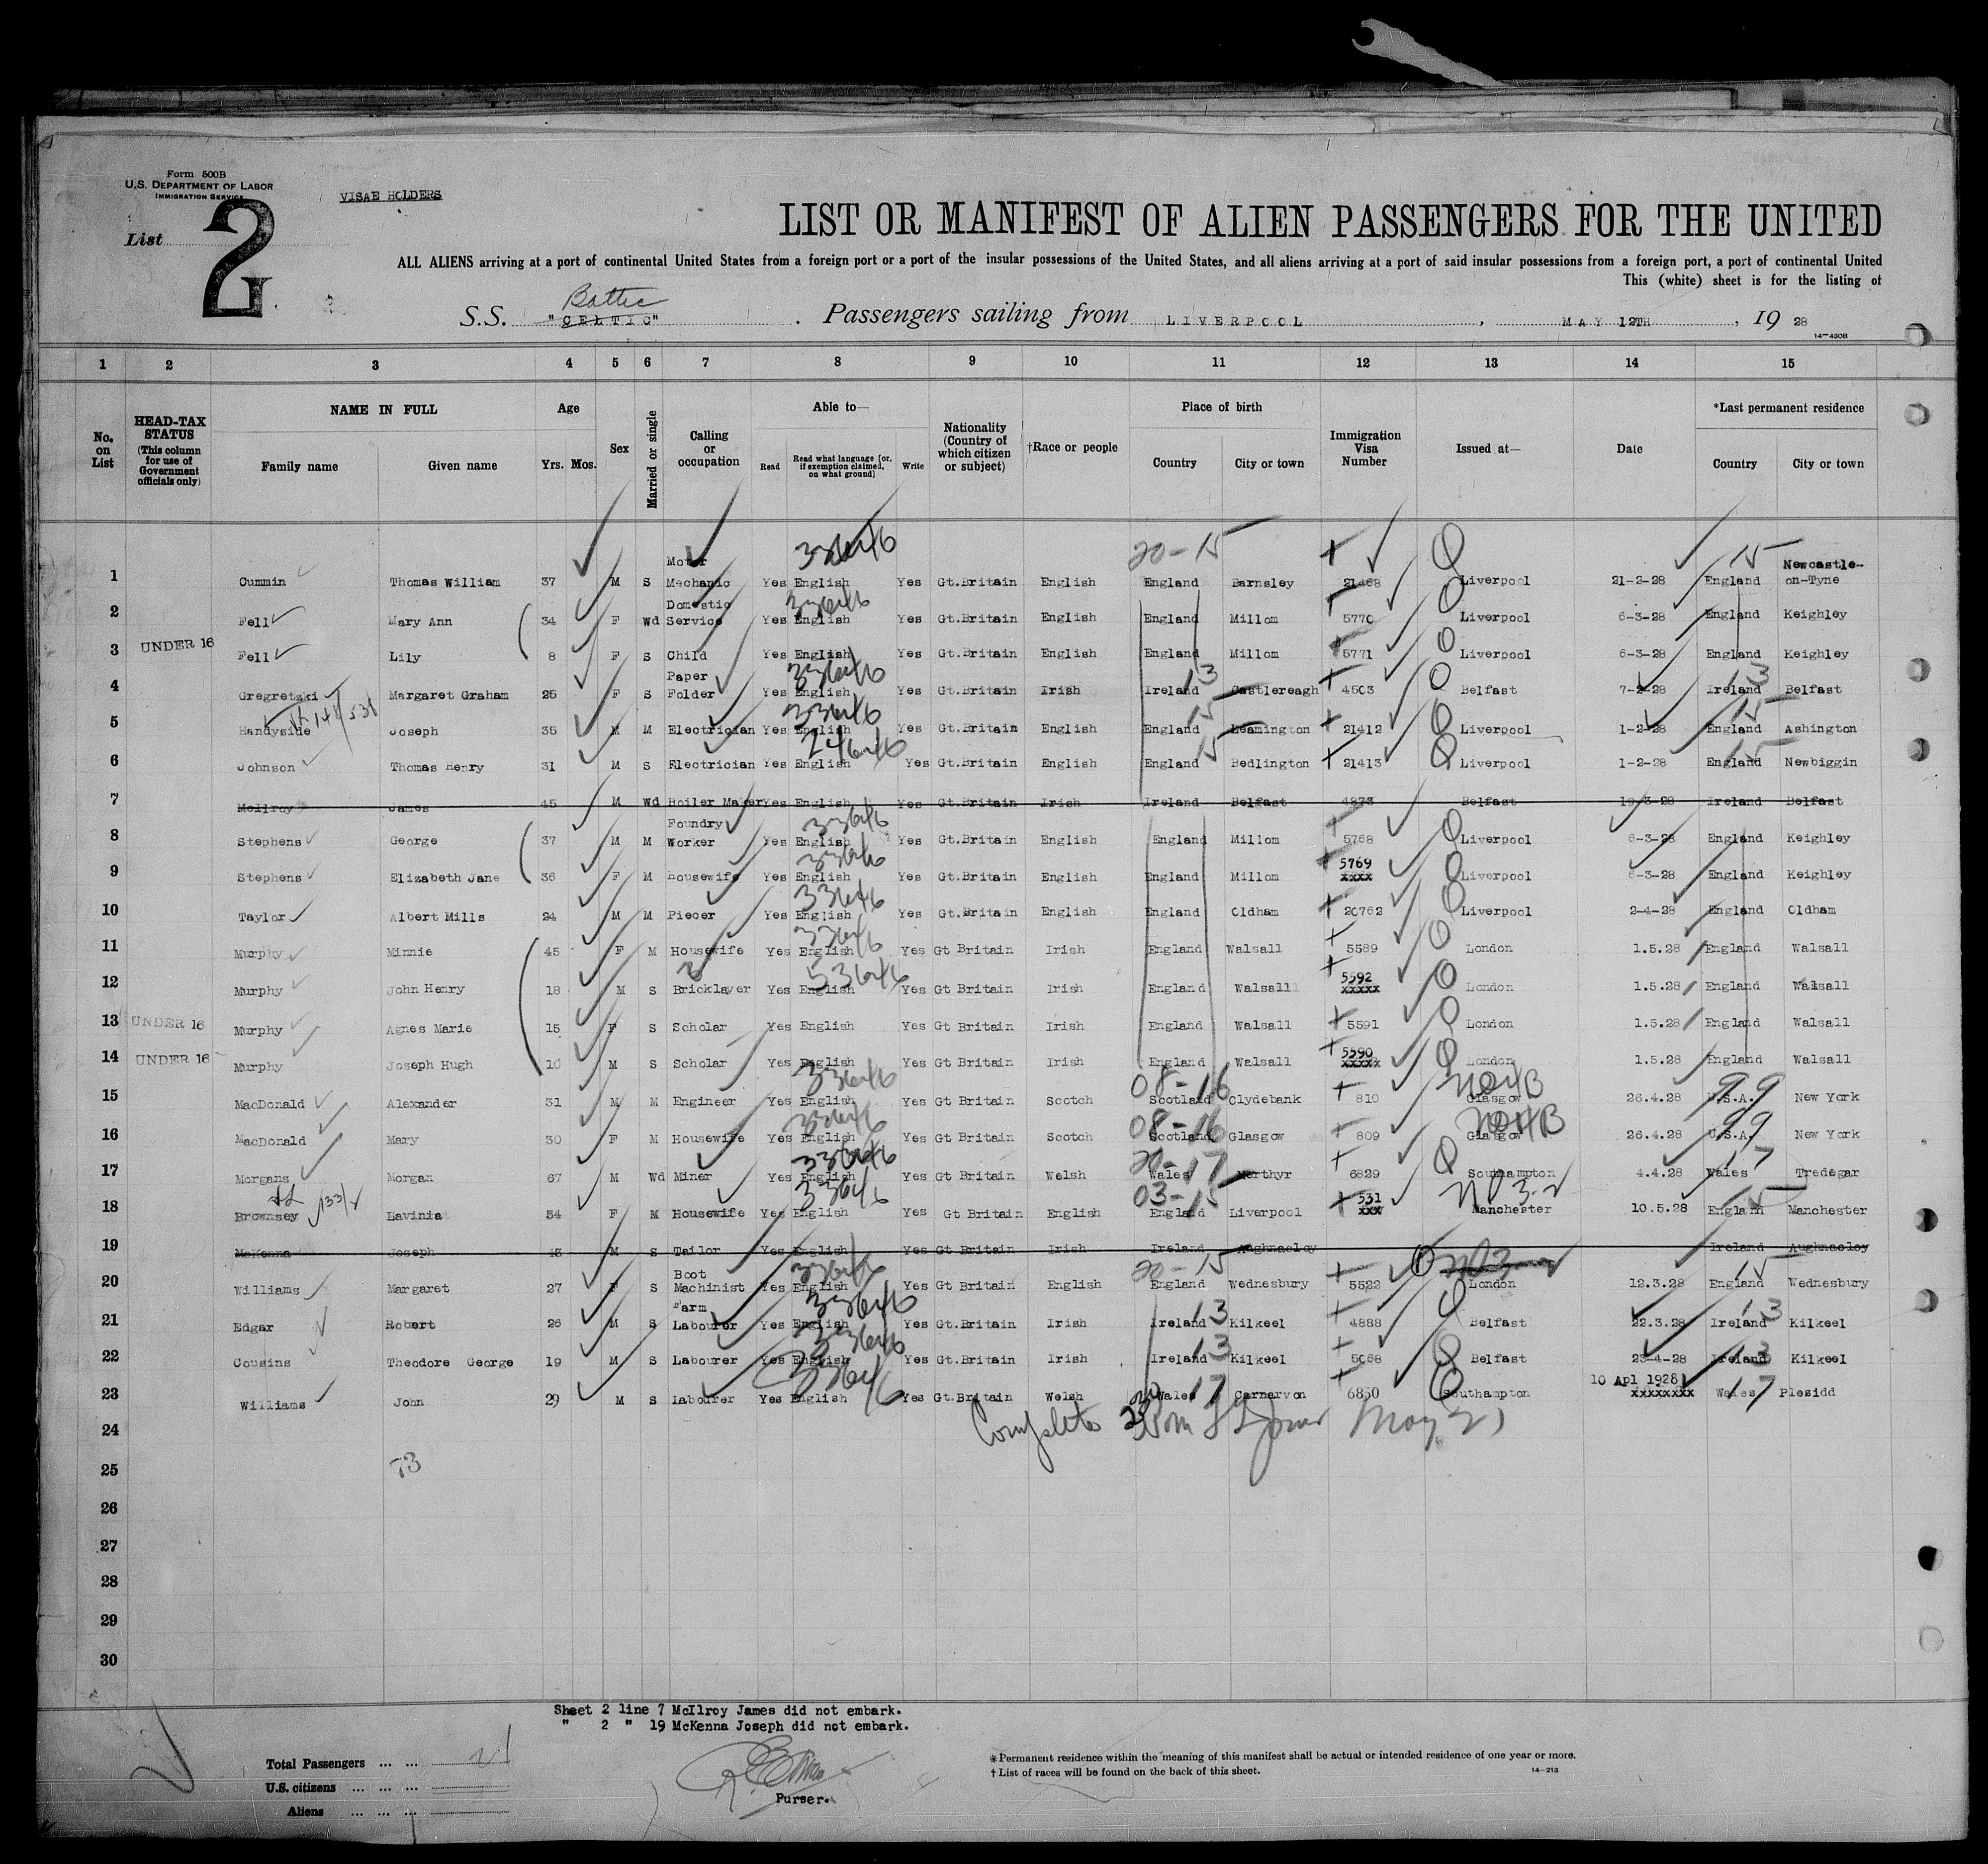 Form 500B
U.S. DEPARTMENT OF LABOR
IMMIGRATION SERVICE
VISAE HOLDERS
List 2
LIST OR MANIFEST OF ALIEN PASSENGERS FOR THE UNITED
ALL ALIENS arriving at a port of continental United States from a foreign port or a port of the insular possessions of the United States, and all aliens arriving at a port of said insular possessions from a foreign port, a port of continental United
This (white) sheet is for the listing of
Baltic
S.S. "CELTIC" . Passengers sailing from LIVERPOOL , MAY 12TH , 19 28
14—430B
1 2 3 4 5 6 7 8 9 10 11 12 13 14 15
No. on List
HEAD-TAX STATUS (This column for use of Government officials only)
NAME IN FULL
Family name Given name
Age
Yrs. Mos.
Sex
Married or single
Calling or occupation
Able to—
Read Read what language [or, if exemption claimed, on what ground] Write
Nationality (Country of which citizen or subject)
†Race or people
Place of birth
Country City or town
Immigration Visa Number
Issued at—
Date
*Last permanent residence
Country City or town
33646 20-15 15
1 Cummin Thomas William 37 M S Motor Mechanic Yes English Yes Gt.Britain English England Barnsley 21468 Liverpool 21-2-28 England Newcastle-on-Tyne
33646
2 Fell Mary Ann 34 F Wd Domestic Service Yes English Yes Gt.Britain English England Millom 5770 Liverpool 6-3-28 England Keighley
3 UNDER 16 Fell Lily 8 F S Child Yes English Yes Gt.Britain English England Millom 5771 Liverpool 6-3-28 England Keighley
33646 13 13
4 Gregretzki Margaret Graham 25 F S Paper Folder Yes English Yes Gt.Britain Irish Ireland Castlereagh 4503 Belfast 7-2-28 Ireland Belfast
33646 15 15
5 Handyside Joseph 35 M M Electrician Yes English Yes Gt.Britain English England Leamington 21412 Liverpool 1-2-28 England Ashington
15 15
6 Johnson Thomas Henry 31 M S Electrician Yes English Yes Gt.Britain English England Bedlington 21413 Liverpool 1-2-28 England Newbiggin
7 McIlroy James 45 M Wd Boiler Maker Yes English Yes Gt.Britain Irish Ireland Belfast 4873 Belfast 19-3-28 Ireland Belfast
33646
8 Stephens George 37 M M Foundry Worker Yes English Yes Gt.Britain English England Millom 5768 Liverpool 6-3-28 England Keighley
33646
9 Stephens Elizabeth Jane 36 F M Housewife Yes English Yes Gt.Britain English England Millom 5769 xxxx Liverpool 6-3-28 England Keighley
33646
10 Taylor Albert Mills 24 M M Piecer Yes English Yes Gt.Britain English England Oldham 20762 Liverpool 2-4-28 England Oldham
33646
11 Murphy Minnie 45 F M Housewife Yes English Yes Gt Britain Irish England Walsall 5589 London 1.5.28 England Walsall
3 53646
12 Murphy John Henry 18 M S Bricklayer Yes English Yes Gt Britain Irish England Walsall 5592 xxxxx London 1.5.28 England Walsall
13 UNDER 16 Murphy Agnes Marie 15 F S Scholar Yes English Yes Gt Britain Irish England Walsall 5591 London 1.5.28 England Walsall
14 UNDER 16 Murphy Joseph Hugh 10 M S Scholar Yes English Yes Gt Britain Irish England Walsall 5590 xxxxx London 1.5.28 England Walsall
33646 08-16 99
15 MacDonald Alexander 31 M M Engineer Yes English Yes Gt Britain Scotch Scotland Clydebank 810 Glasgow 26.4.28 U.S.A. New York
33646 08-16 99
16 MacDonald Mary 30 F M Housewife Yes English Yes Gt Britain Scotch Scotland Glasgow 809 Glasgow 26.4.28 U.S.A. New York
33646 20-17 17
17 Morgans Morgan 67 M Wd Miner Yes English Yes Gt Britain Welsh Wales Merthyr 6829 Southampton 4.4.28 Wales Tredegar
33646 03-15 15
18 Brownsey Lavinia 54 F M Housewife Yes English Yes Gt Britain English England Liverpool 531 xxx Manchester 10.5.28 England Manchester
19 McKenna Joseph 43 M S Tailor Yes English Yes Gt Britain Irish Ireland Aughnacloy Ireland Aughnacloy
33646 20-15 15
20 Williams Margaret 27 F S Boot Machinist Yes English Yes Gt Britain English England Wednesbury 5522 London 12.3.28 England Wednesbury
33646 13 13
21 Edgar Robert 26 M S Farm Labourer Yes English Yes Gt.Britain Irish Ireland Kilkeel 4888 Belfast 22.3.28 Ireland Kilkeel
33646 13 13
22 Cousins Theodore George 19 M S Labourer Yes English Yes Gt.Britain Irish Ireland Kilkeel 5068 Belfast 23-4-28 Ireland Kilkeel
33646 20 17 17
23 Williams John 29 M S Labourer Yes English Yes Gt.Britain Welsh Wales Carnarvon 6850 Southampton 10 Apl 1928 xxxxxxxx Wales Plesidd
24 Complete May 21
25 73
26
27
28
29
30
Sheet 2 line 7 McIlroy James did not embark.
" 2 " 19 McKenna Joseph did not embark.
Total Passengers ... ... 21
U.S. citizens ... ... ...
Aliens ... ... ...
Purser.
*Permanent residence within the meaning of this manifest shall be actual or intended residence of one year or more.
†List of races will be found on the back of this sheet.
14—213